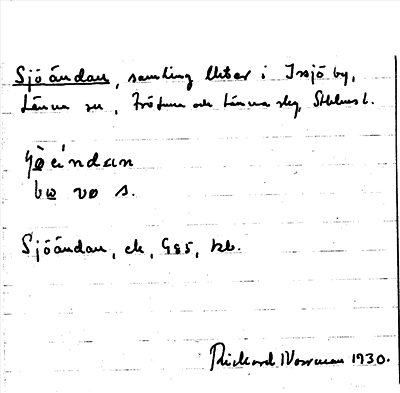 Sjöändan, samling lktar i Insjö by,
Länna sn, Frötuna och Länna skg, Sthlms l.
bɷ vɷ s.
Sjöändan, ek, G85, kb.
Rickard Norrman 1930.